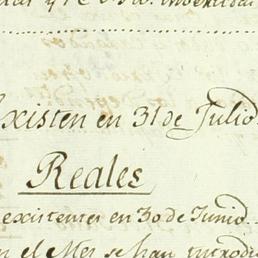 existen en 31 de Julio
Reales
existentes en 30 de Junio
n el Mes se han introdu